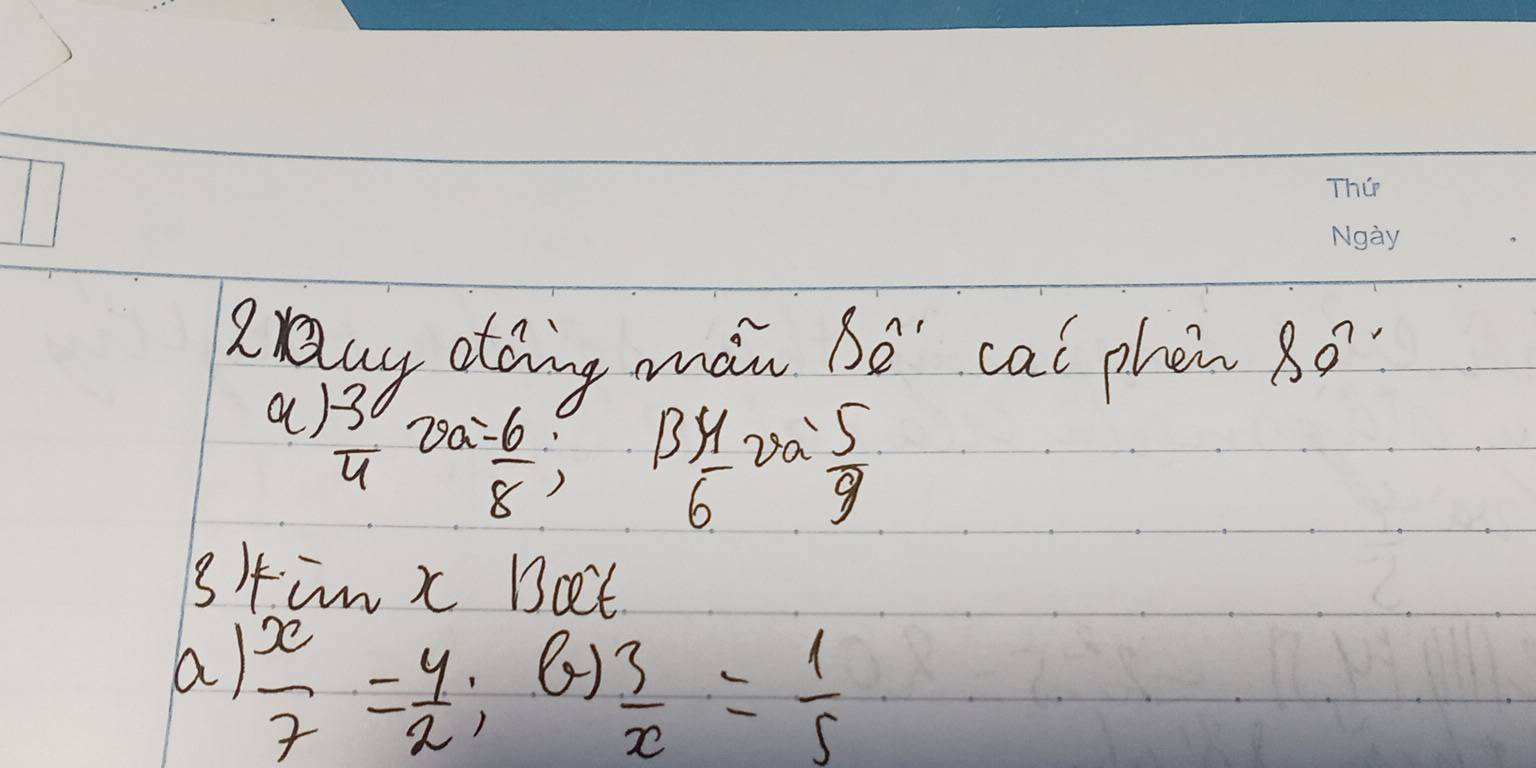 Thứ
Ngày
2) Quy đồng mẫu số các phân số
a) -3/4 và -6/8; B) 1/6 và 5/9
3) tìm x Biết
a) x/7 = 4/2; b) 3/x = 1/5